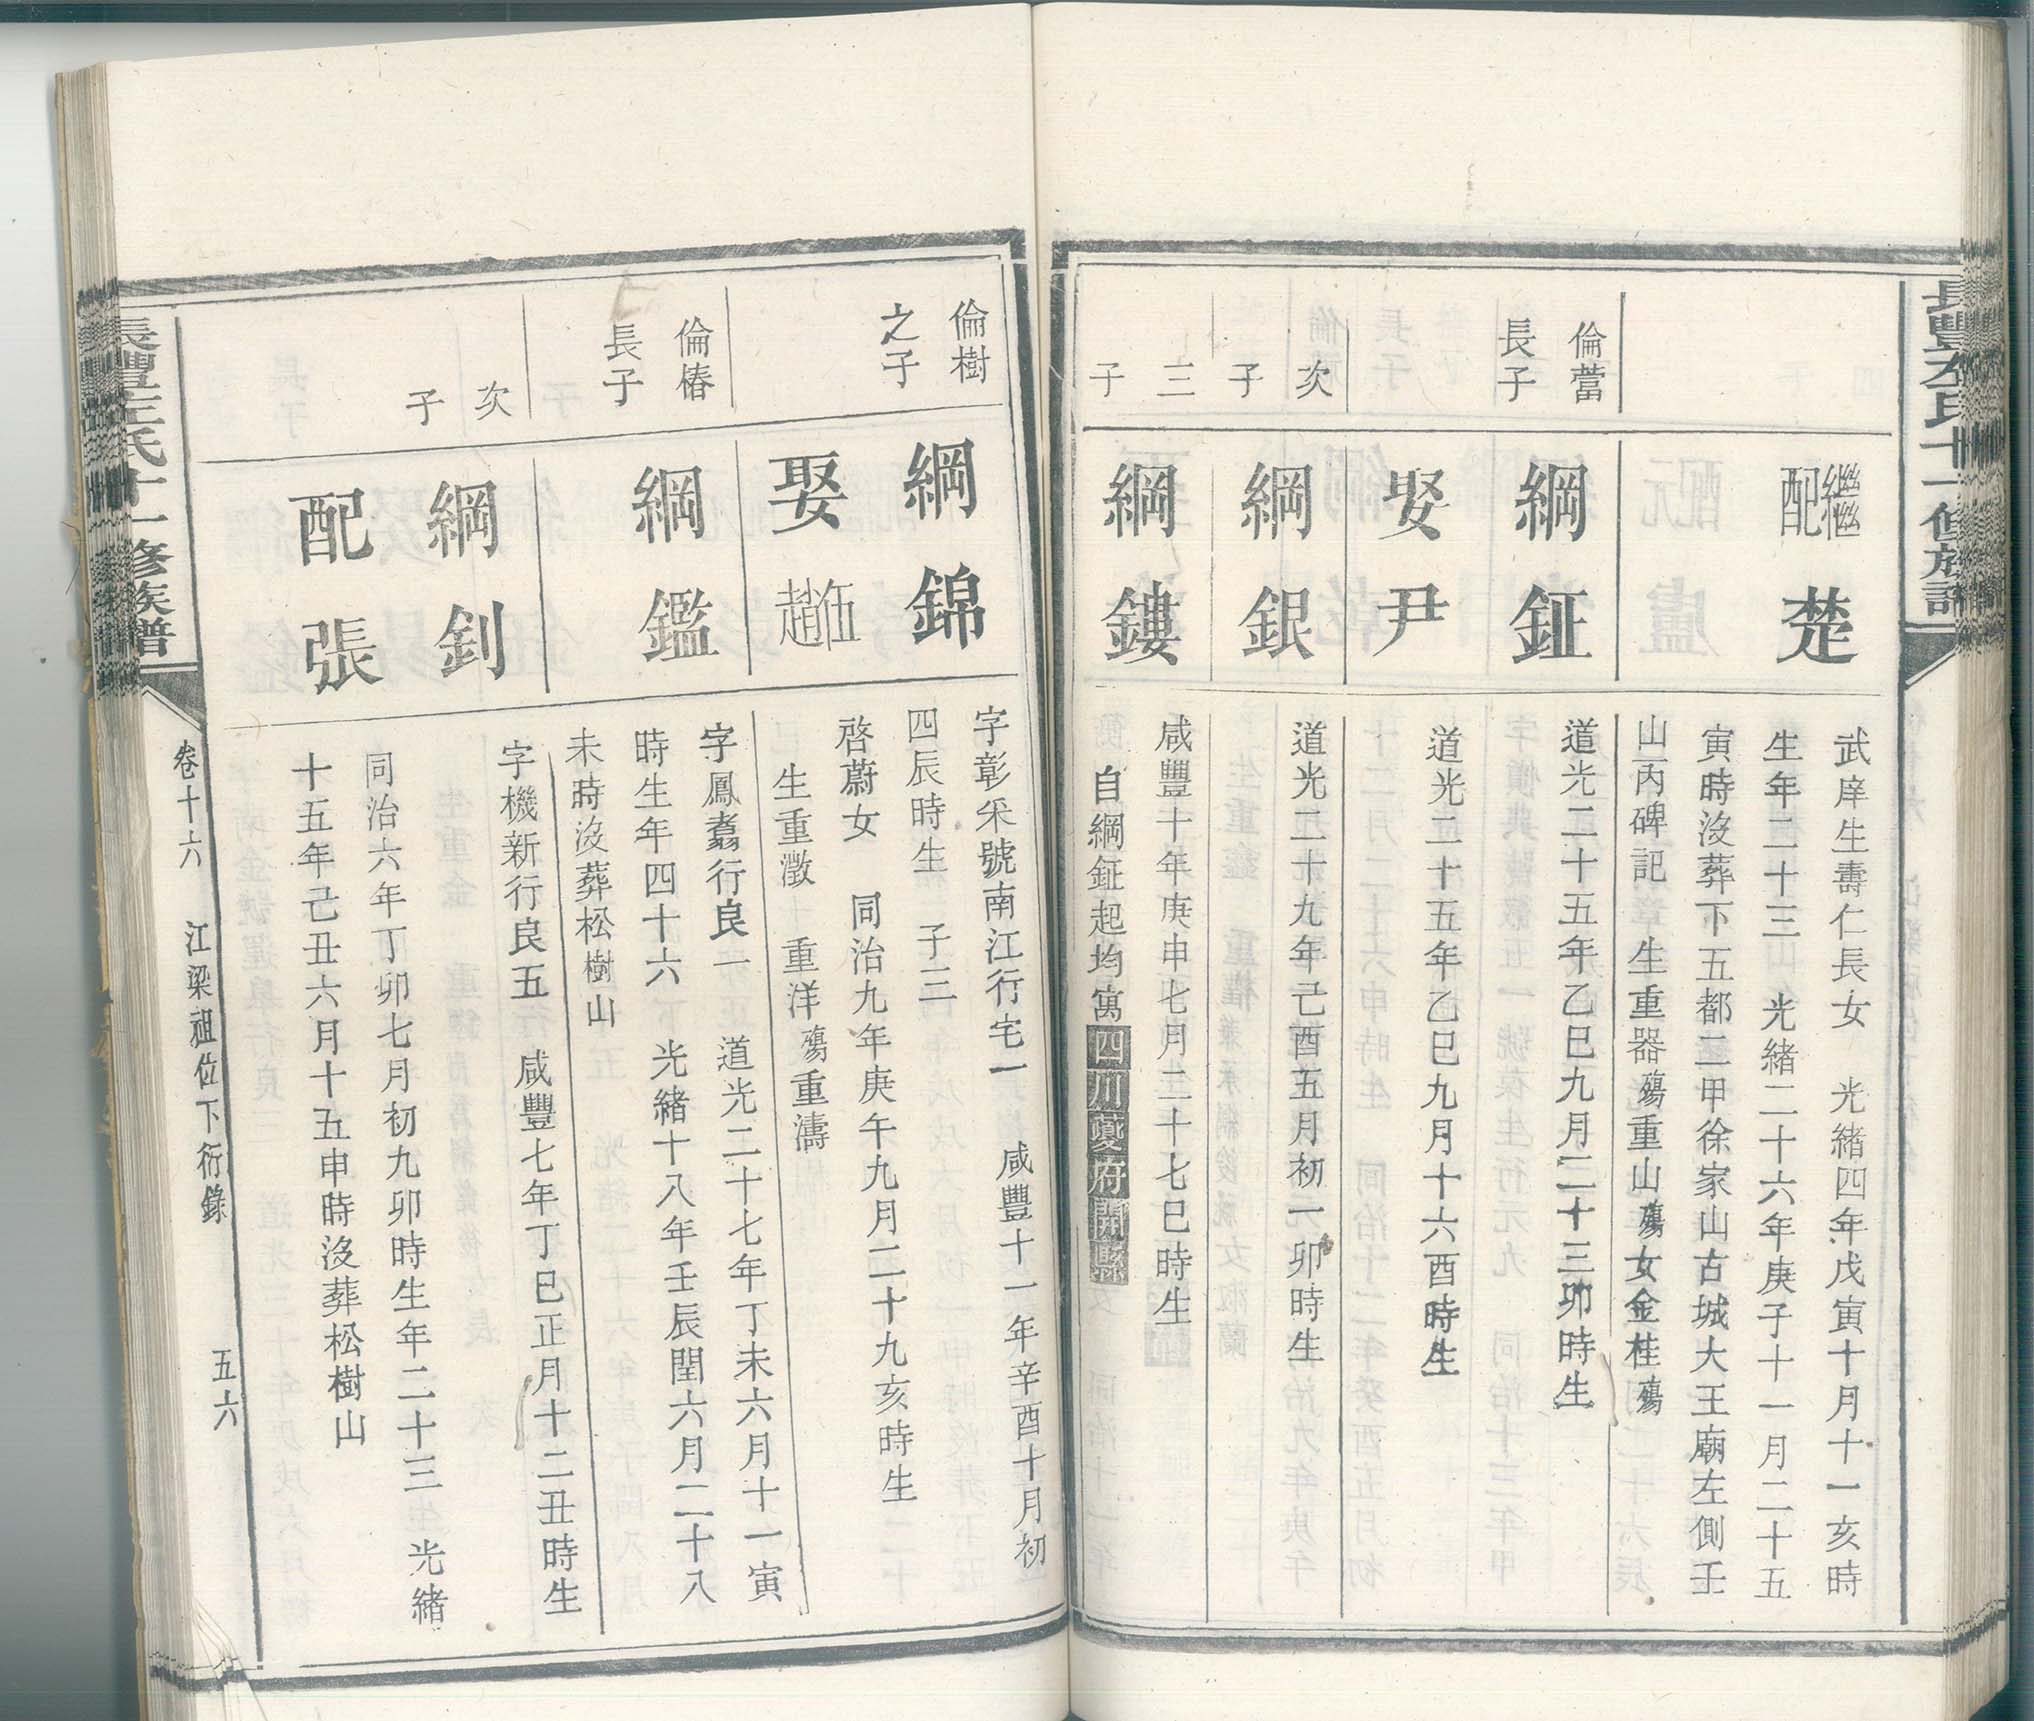 長豐左氏十一修族譜
繼配楚
武庠生壽仁長女　光緒四年戊寅十月十一亥時
生年二十三　光緒二十六年庚子十一月二十五
寅時沒葬下五都二甲徐家山古城大王廟左側壬
山丙碑記　生重器殤重山殤女金桂殤
倫蕾
長子
綱鉦
道光二十五年乙巳九月二十三卯時生
娶尹
道光二十五年乙巳九月十六酉時生
次子
綱銀
道光二十九年己酉五月初一卯時生
三子
綱鏤
咸豐十年庚申七月二十七巳時生
自綱鉦起均寓四川夔府開縣
倫樹
之子
綱錦
字彰采號南江行宅一　咸豐十一年辛酉十月初
四辰時生　子三
娶伍趙
啓蔚女　同治九年庚午九月二十九亥時生
生重澂　重洋殤重濤
倫椿
長子
綱鑑
字鳳翥行良一　道光二十七年丁未六月十一寅
時生年四十六　光緒十八年壬辰閏六月二十八
未時沒葬松樹山
次子
綱釗
字機新行良五　咸豐七年丁巳正月十二丑時生
配張
同治六年丁卯七月初九卯時生年二十三　光緒
十五年己丑六月十五申時沒葬松樹山
長豐左氏十一修族譜
卷十六　江梁祖位下衍錄　五六